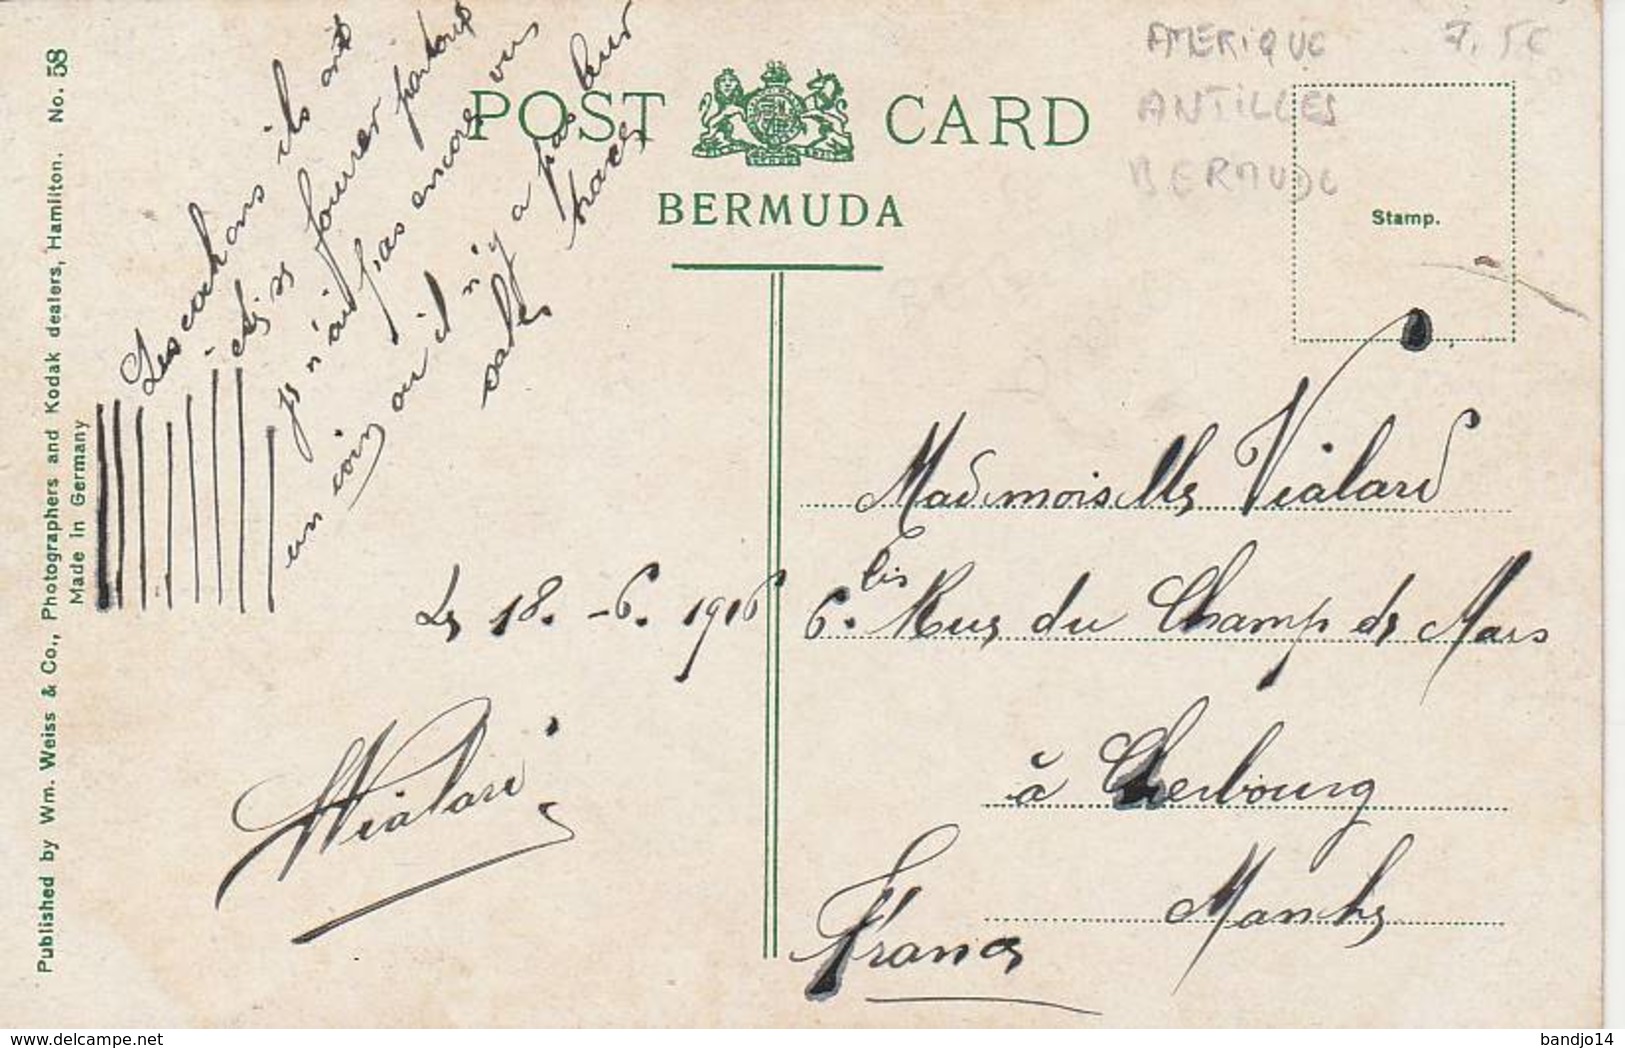 Published by Wm. Weiss & Co., Photographers and Kodak dealers, Hamilton. No. 58
Made in Germany
POST CARD
BERMUDA
Stamp.
AMERIQUE 7,5€
ANTILLES
BERMUDE
Les cochons ils ont
fourrer partout
je n'ai pas encore vus
un coin ou il n'y a pas leur
sales traces
Le 18.-6.1916
Vialard
Mademoiselle Vialard
6.bis Rue du Champ de Mars
à Cherbourg
Manche
France
delcampe.net
bandjo14